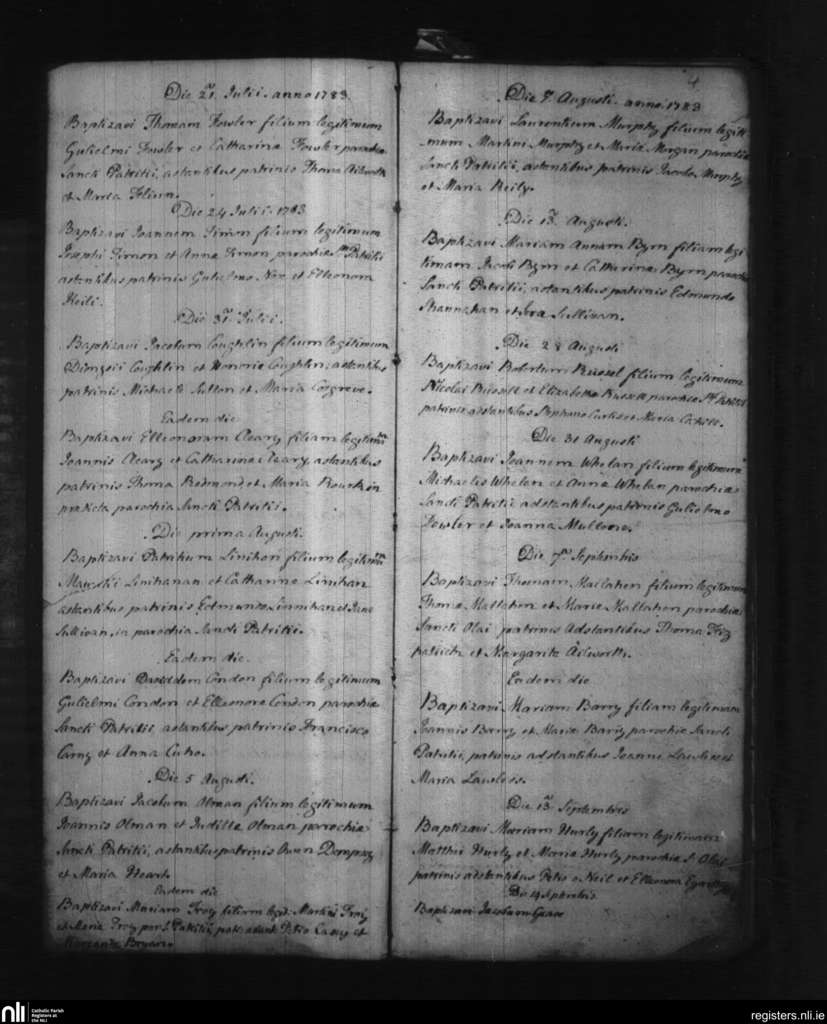 Die 21. Julii. anno 1783.
Baptizavi Thomam Fowler filium legitimum
Gulielmi Fowler et Catharinæ Fowler parochiæ
Sancti Patritii, astantibus patrinis Thoma
et Maria
Die 24 Julii. 1783
Baptizavi Joannem Simon filium legitimum
Josephi et Anna parochiæ Sti. Patritii
astantibus patrinis Gulielmo et Elleonora
Keili.
Die 31 Julii.
Baptizavi Jacobum Coughlin filium legitimum
Dionysii Coughlin et Honoriæ Coughlin, astantibus
patrinis Michaele Sutton et Maria Cosgreve.
Eadem die
Baptizavi Elleonoram Cleary filiam legitimam
Joannis Cleary et Catharinæ Cleary, astantibus
patrinis Thoma Redmond et Maria Rourk in
parochia Sancti Patritii.
Die prima Augusti.
Baptizavi Patritium Linihan filium legitimum
Linihanan et Catharinæ Linihan
astantibus patrinis Edmundo Linnihan et
Sullivan, in parochia Sancti Patritii.
Eadem die.
Baptizavi Davidem Condon filium legitimum
Gulielmi Condon et Elleonoræ Condon parochiæ
Sancti Patritii astantibus patrinis Francisco
et Anna
Die 5 Augusti.
Baptizavi Jacobum Olman filium legitimum
Joannis Olman et Judithæ Olman parochiæ
Sancti Patritii, astantibus patrinis Owen Dempsey
et Maria Heart.
Eadem die
Baptizavi Mariam Troy filiam legit: Martini Troy
et Mariæ Troy par: S. Patritii, patr: adant Petro et
Bryan
4
Die 8. Augusti. anno. 1783
Baptizavi Laurentium Murphy filium legiti-
mum Martini Murphy et Mariæ Morgan parochiæ
Sancti Patritii, astantibus patrinis Jacobo Murphy
et Maria Reily.
Die 13. Augusti.
Baptizavi Mariam Annam Byrn filiam legi
timam Jacobi Byrn et Catharinæ Byrn parochiæ
Sancti Patritii, astantibus patrinis Edmundo
Shannahan et Sullivan.
Die 28 Augusti
Baptizavi Robertum Russel filium legitimum
Nicolai Russell et Elizabethæ Russell parochiæ Sti. Patritii
patrinis astantibus Stephano Curlis et Maria
Die 31 Augusti
Baptizavi Joannem Whelan filium legitimum
Michaelis Whelan et Annæ Whelan parochiæ
Sancti Patritii adstantibus patrinis Gulielmo
Fowler et Joanna Mulloone.
Die 7a. Septembris
Baptizavi Thomam Hallahen filium legitimum
Thomæ Hallahen et Mariæ Hallahen parochiæ
Sancti Olai patrinis Adstantibus Thoma Fitz
patrick et Margarita Adworth.
Eadem die
Baptizavi Mariam Barry filiam legitimam
Joannis Barry et Mariæ Barry parochiæ Sancti
Patritii, patrinis adstantibus Joanne Lawless et
Maria Lawless.
Die 13. Septembris
Baptizavi Mariam Hurly filiam legitimam
Matthei Hurly et Mariæ Hurly parochiæ S. Olai
patrinis adstantibus Petro o Neil et Elleonora
Die 14 Septembris
Baptizavi Jacobum Grace
nli
Catholic Parish
Registers at
the NLI
registers.nli.ie